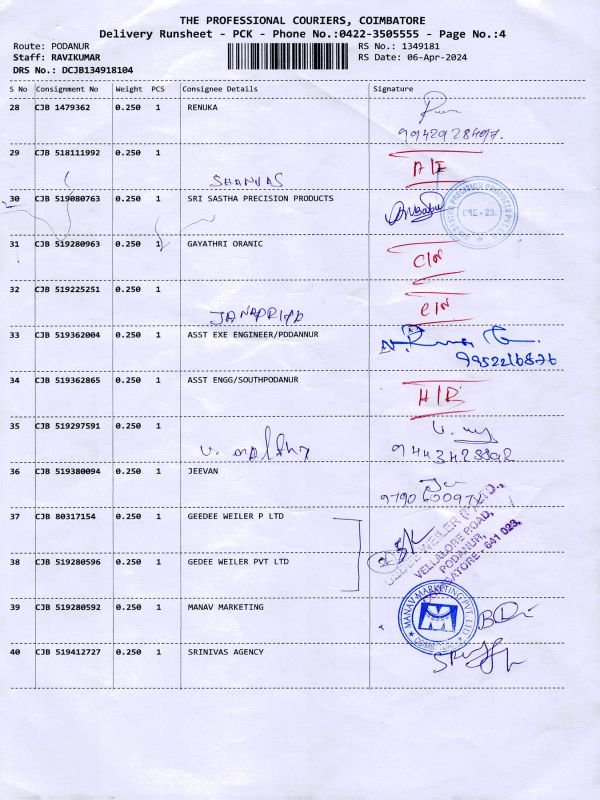 THE PROFESSIONAL COURIERS, COIMBATORE
Delivery Runsheet - PCK - Phone No.:0422-3505555 - Page No.:4
Route: PODANUR RS No.: 1349181
Staff: RAVIKUMAR RS Date: 06-Apr-2024
DRS No.: DCJB134918104
S No Consignment No Weight PCS Consignee Details Signature
28 CJB 1479362 0.250 1 RENUKA
29 CJB 518111992 0.250 1
SHANVAS
30 CJB 519080763 0.250 1 SRI SASTHA PRECISION PRODUCTS
31 CJB 519280963 0.250 1 GAYATHRI ORANIC
C/N
32 CJB 519225251 0.250 1
C/N
33 CJB 519362004 0.250 1 ASST EXE ENGINEER/PDDANNUR
9952216876
34 CJB 519362865 0.250 1 ASST ENGG/SOUTHPODANUR
35 CJB 519297591 0.250 1
36 CJB 519380094 0.250 1 JEEVAN
37 CJB 80317154 0.250 1 GEEDEE WEILER P LTD
VELLALORE ROAD,
PODANUR,
38 CJB 519280596 0.250 1 GEDEE WEILER PVT LTD
39 CJB 519280592 0.250 1 MANAV MARKETING
MANAV MARKETING PVT. LTD.
40 CJB 519412727 0.250 1 SRINIVAS AGENCY